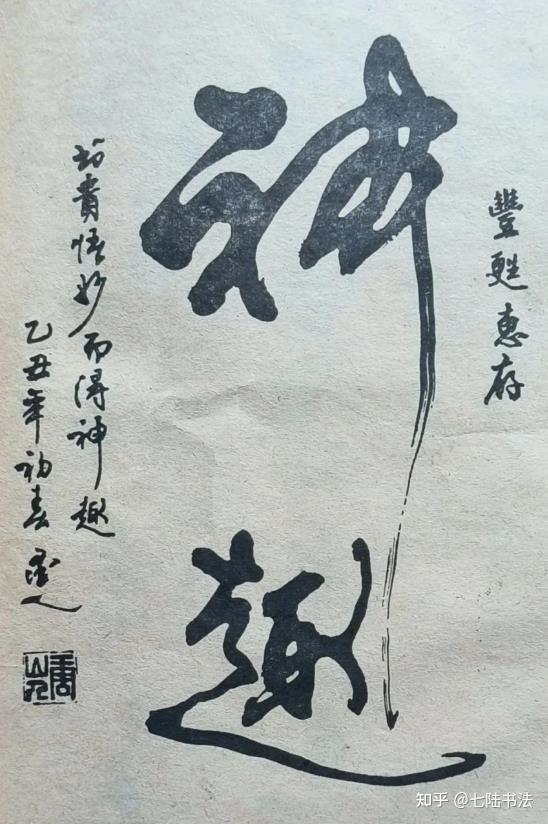 豐甦惠存
神趣
貴悟妙而得神趣
乙丑年初春
知乎 @七陆书法